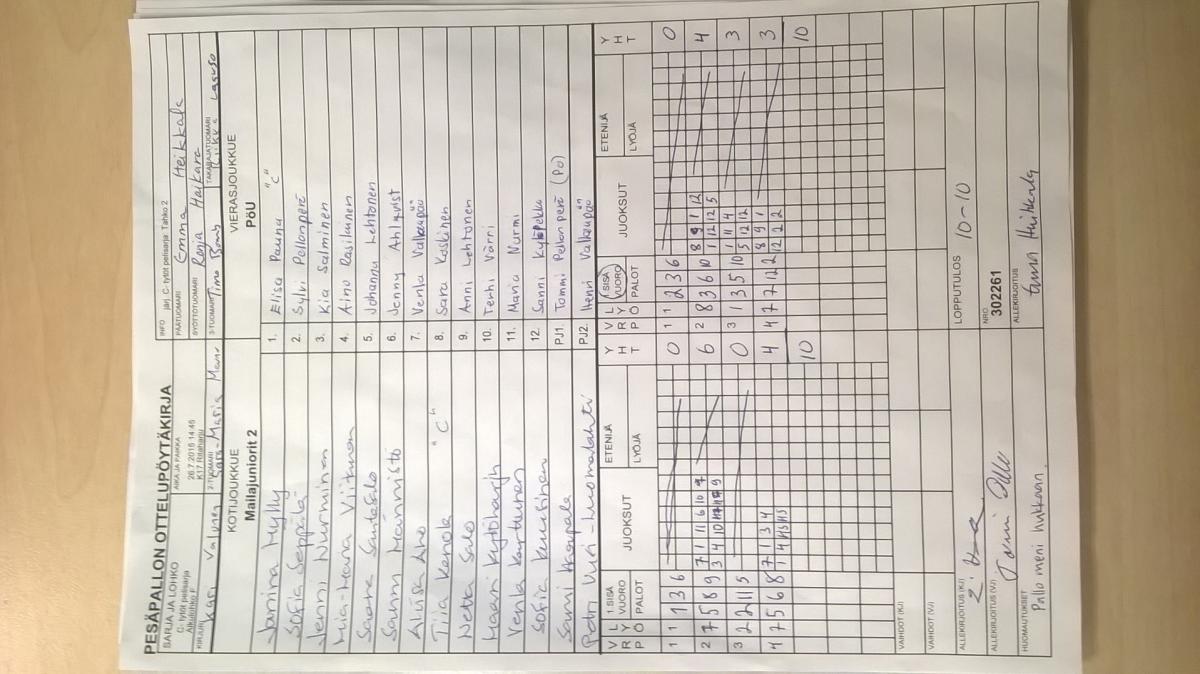 PESÄPALLON OTTELUPÖYTÄKIRJA
SARJA JA LOHKO
C- tytöt pelisarja
Alkulohko F
AIKA JA PAIKKA
26.7.2015 14:45
K17 Ritaharju
INFO järj. C- tytöt pelisarja: Tahko 2
PÄÄTUOMARI Emma Heikkala
SYÖTTÖTUOMARI Ronja Haikara
KIRJURI Kari Valunen
2-TUOMARI
3-TUOMARI Timo
TAKARAJATUOMARI Riikka
KOTIJOUKKUE
Mailajuniorit 2
VIERASJOUKKUE
PöU
Janina Mylly
1. Elisa Pauna "C"
Sofia Seppälä
2. Sylvi Pollonperä
Jenni Nurminen
3. Kia Salminen
Mia-Maria Viitanen
4. Aino Rasilainen
Saara Santasalo
5. Johanna Lehtonen
Sanni Mannisto
6. Jenny Ahlqvist
Aliisa Aho
7. Venla Valkeapää
Tiia Kenola "C"
8. Sara Koskinen
Netta Salo
9. Anni Lehtonen
Maari Kytöharju
10. Terhi Värri
Venla Karttunen
11. Maria Nurmi
Sofia
12. Sanni
Sami Haapala
PJ1. Tommi Pellonperä (Po)
Petri
PJ2. Henri Valkeapää
V R P L Y Ö 1.SISÄ VUORO PALOT JUOKSUT ETENIJÄ LYÖJÄ Y H T
V R P L Y Ö 1.SISÄ VUORO PALOT JUOKSUT ETENIJÄ LYÖJÄ Y H T
1 1 1 3 6 0
1 1 2 3 6 0
2 7 5 8 9 7 1 11 6 10 9 6
2 8 3 6 10 8 9 1 12 4
3 4 10
1 12 12 5
3 2 2 11 5 0
3 1 3 5 10 1 11 4 3
5 12 12
4 7 5 6 8 7 1 3 4 4
4 4 7 12 2 8 9 1 3
12 2 2
10
10
VAIHDOT (KJ)
VAIHDOT (VJ)
ALLEKIRJOITUS (KJ)
LOPPUTULOS 10-10
ALLEKIRJOITUS (VJ)
NRO
302261
ALLEKIRJOITUS
HUOMAUTUKSET
Pallo meni hukkaan.